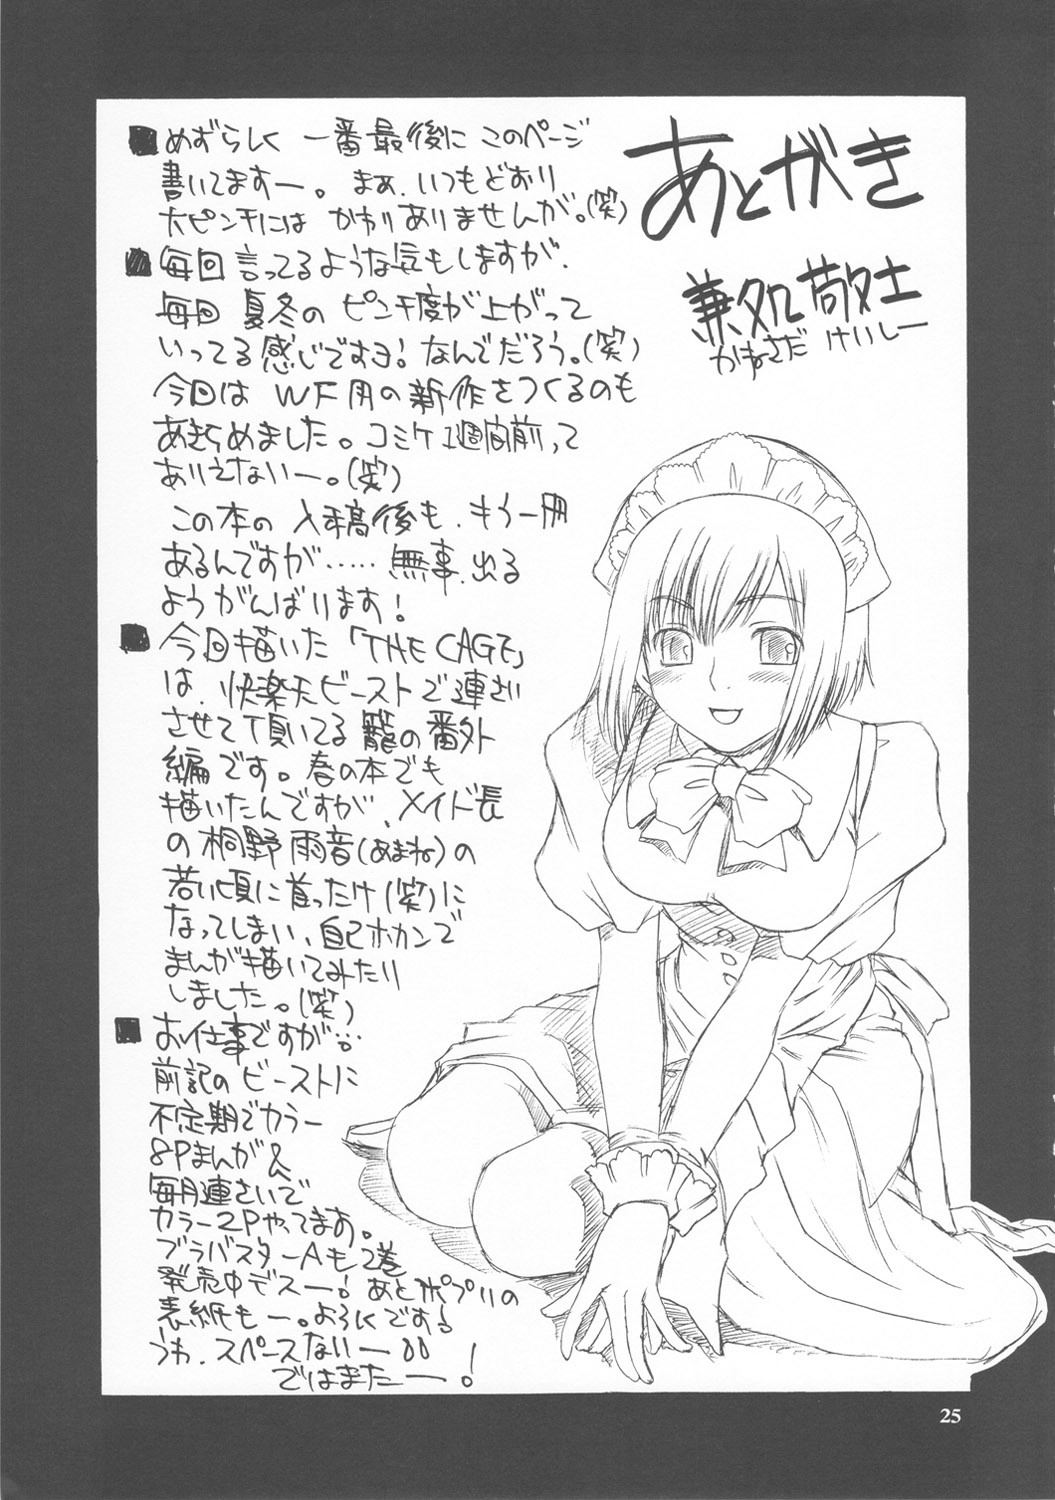 あとがき
兼処敬士
かねさだ けいしー
■めずらしく 一番最後に このページ
書いてますー。まぁ、いつもどおり
大ピンチには かわりありませんが。(笑)
■毎回言ってるような気もしますが、
毎回 夏冬の ピンチ度が上がって
いってる感じですヨ!なんでだろう。(笑)
今回は WF用の新作をつくるのも
あきらめました。コミケ1週間前って
ありえないー。(笑)
この本の 入稿後も、もう一冊
あるんですが……無事、出る
ようがんばります!
■今回描いた「THE CAGE」
は、快楽天ビーストで連さい
させて頂いてる 籠の番外
編です。春の本でも
描いたんですが、メイド長
の 桐野 雨音(あまね)の
若い頃に首ったけ(笑)に
なってしまい、自己ホカンで
まんが描いてみたり
しました。(笑)
■お仕事ですが…
前記のビーストに
不定期でカラー
8Pまんが&
毎月連さいで
カラー2Pやってます。
ブラバスターAも2巻
発売中デスー!あとポプリの
表紙もー。よろしくでする
うわ、スペースないー
ではまたー!
25